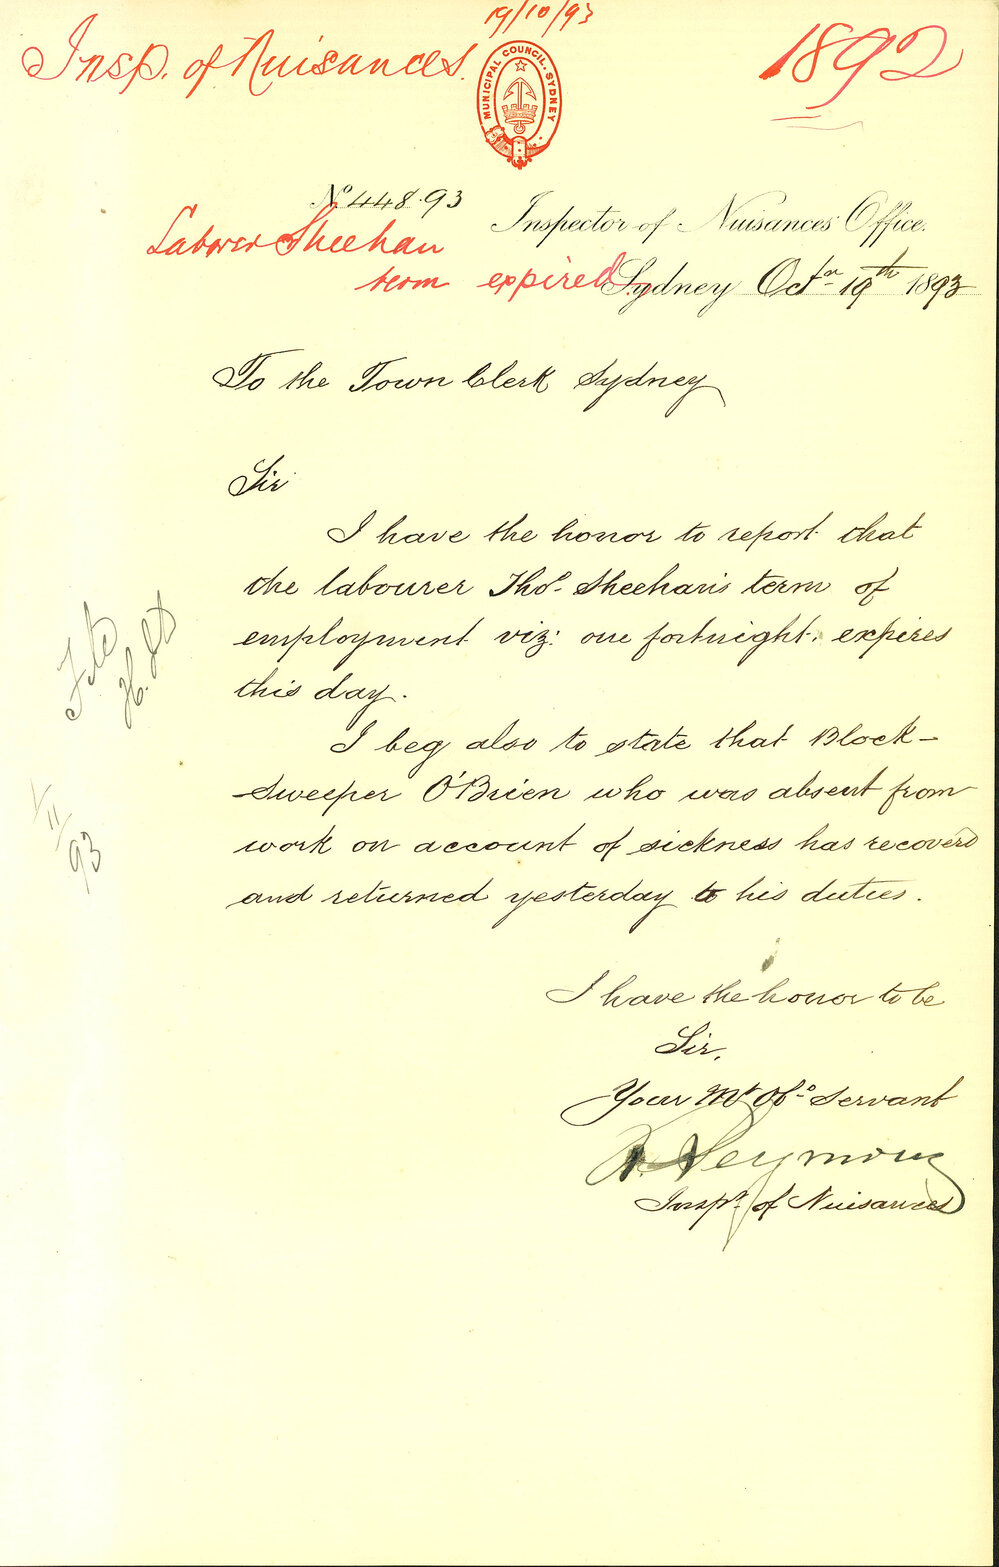 19/10/93
Insp. of Nuisances.
1892
MUNICIPAL COUNCIL. SYDNEY
No 448.93
Inspector of Nuisances' Office.
Laborer Sheehan
term expired
Sydney Octr 19th 1893
To the Town Clerk Sydney
Sir
I have the honor to report that
the labourer Thos. Sheehan's term of
employment viz: one fortnight. expires
this day.
I beg also to state that Block-
-sweeper O'Brien who was absent from
work on account of sickness has recovered
and returned yesterday to his duties.
File
1/11/93
I have the honor to be
Sir,
Your Mt Obt servant
R. Seymour
Inspr. of Nuisances